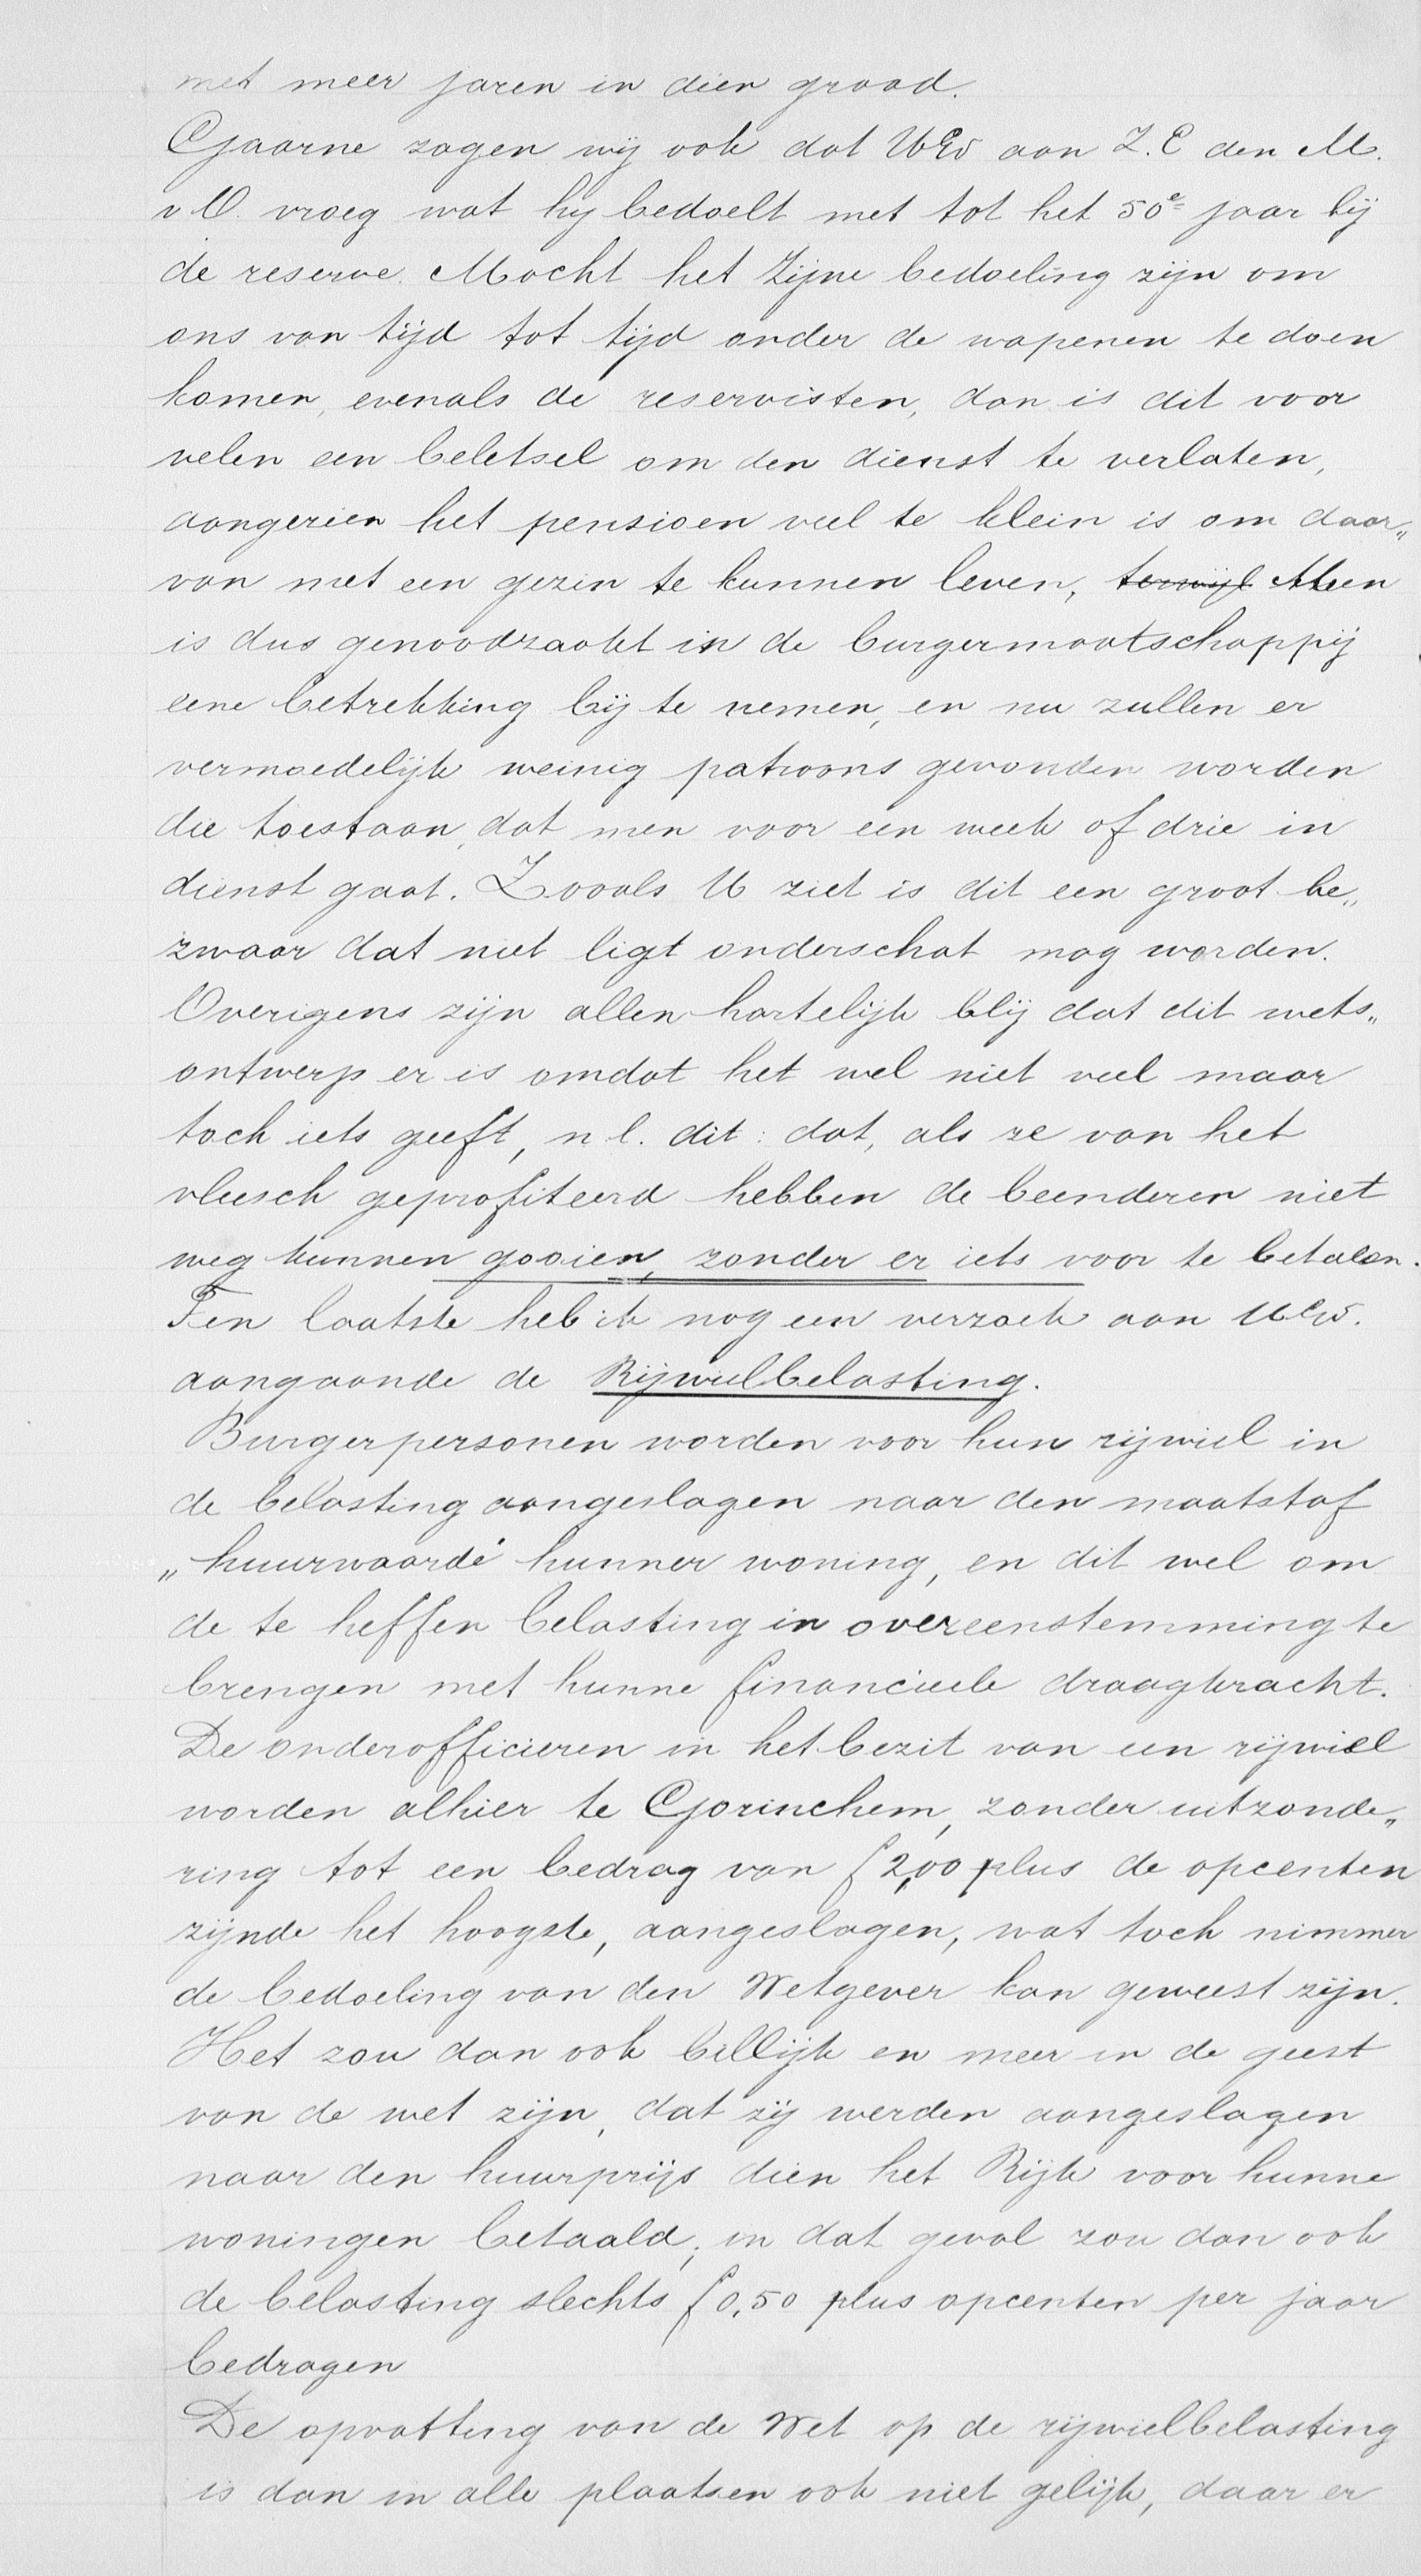 met meer jaren in dien graad.
Gaarne zagen wij ook dat UEW aan Z.E den M.
v O. vroeg wat hij bedoelt met tot het 50e jaar bij
de reserve. Mocht het Zijne bedoeling zijn om
ons van tijd tot tijd onder de wapenen te doen
komen, evenals de reservisten, dan is dit voor
velen een beletsel om den dienst te verlaten,
aangezien het pensioen veel te klein is om daar„
van met een gezin te kunnen leven, terwijl Men
is dus genoodzaakt in de burgermaatschappij
eene betrekking bij te nemen, en nu zullen er
vermoedelijk weinig patroons gevonden worden
die toestaan, dat men voor een week of drie in
dienst gaat. Zooals U ziet is dit een groot be„
zwaar dat niet ligt onderschat mag worden.
Overigens zijn allen hartelijk blij dat dit wets„
ontwerp er is omdat het wel niet veel maar
toch iets geeft, n l. dit: dat, als ze van het
vleesch geprofiteerd hebben de beenderen niet
weg kunnen gooien, zonder er iets voor te betalen.
Ten laatste heb ik nog een verzoek aan UEW.
aangaande de Rijwielbelasting.
Burgerpersonen worden voor hun rijwiel in
de belasting aangeslagen naar den maatstaf
„huurwaarde" hunner woning, en dit wel om
de te heffen belasting in overeenstemming te
brengen met hunne financieele draagkracht.
De onderofficieren in het bezit van een rijwiel
worden alhier te Gorinchem, zonder uitzonde„
ring tot een bedrag van f 2,00 plus de opcenten
zijnde het hoogste, aangeslagen, wat toch nimmer
de bedoeling van den Wetgever kan geweest zijn.
Het zou dan ook billijk en meer in de geest
van de wet zijn, dat zij werden aangeslagen
naar den huurprijs dien het Rijk voor hunne
woningen betaald; in dat geval zou dan ook
de belasting slechts f 0,50 plus opcenten per jaar
bedragen
De opvatting van de Wet op de rijwielbelasting
is dan in alle plaatsen ook niet gelijk, daar er